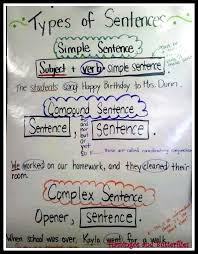 Types of Sentences
Simple Sentence
Subject + verb = simple sentence.
The students sang Happy Birthday to Mrs. Dunn.
Compound Sentence
Sentence, and nor but or yet so sentence.
these are called coordinating conjunctions
We worked on our homework, and they cleaned their
room.
Complex Sentence
Opener, sentence.
When school was over, Kayla went for a walk.
Hamingtes and Butterflies